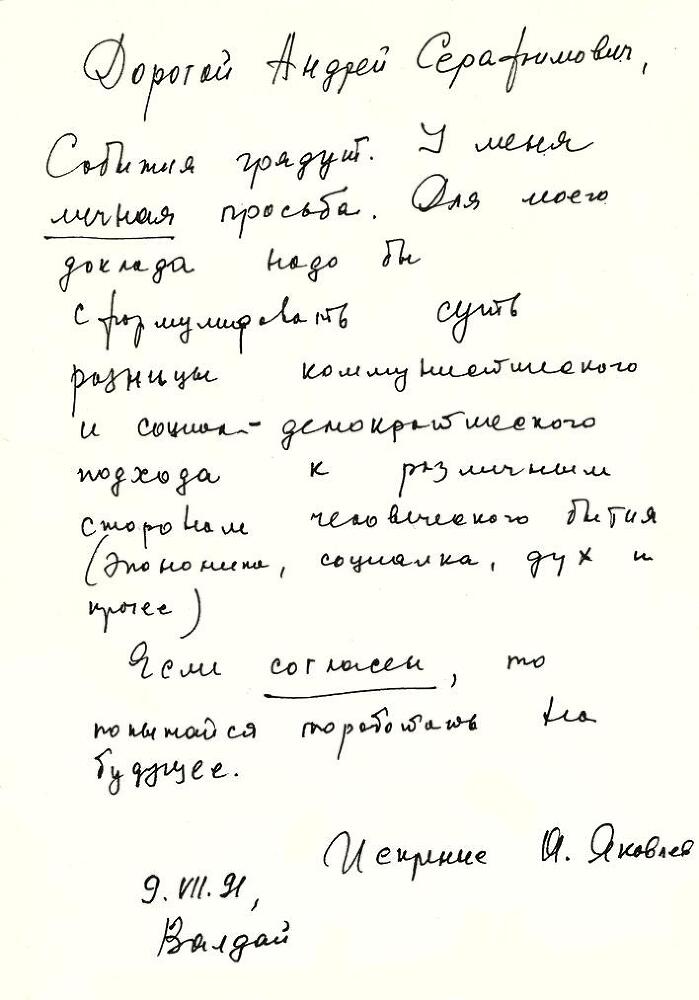 Дорогой Андрей Серафимович,
События грядут. У меня
личная просьба. Для моего
доклада надо бы
сформулировать суть
разницы коммунистического
и социал-демократического
подхода к различным
сторонам человеческого бытия
(экономика, социалка, дух и
прочее)
Если согласен, то
попытайся поработать на
будущее.
Искренне А. Яковлев
9.VII.91,
Валдай